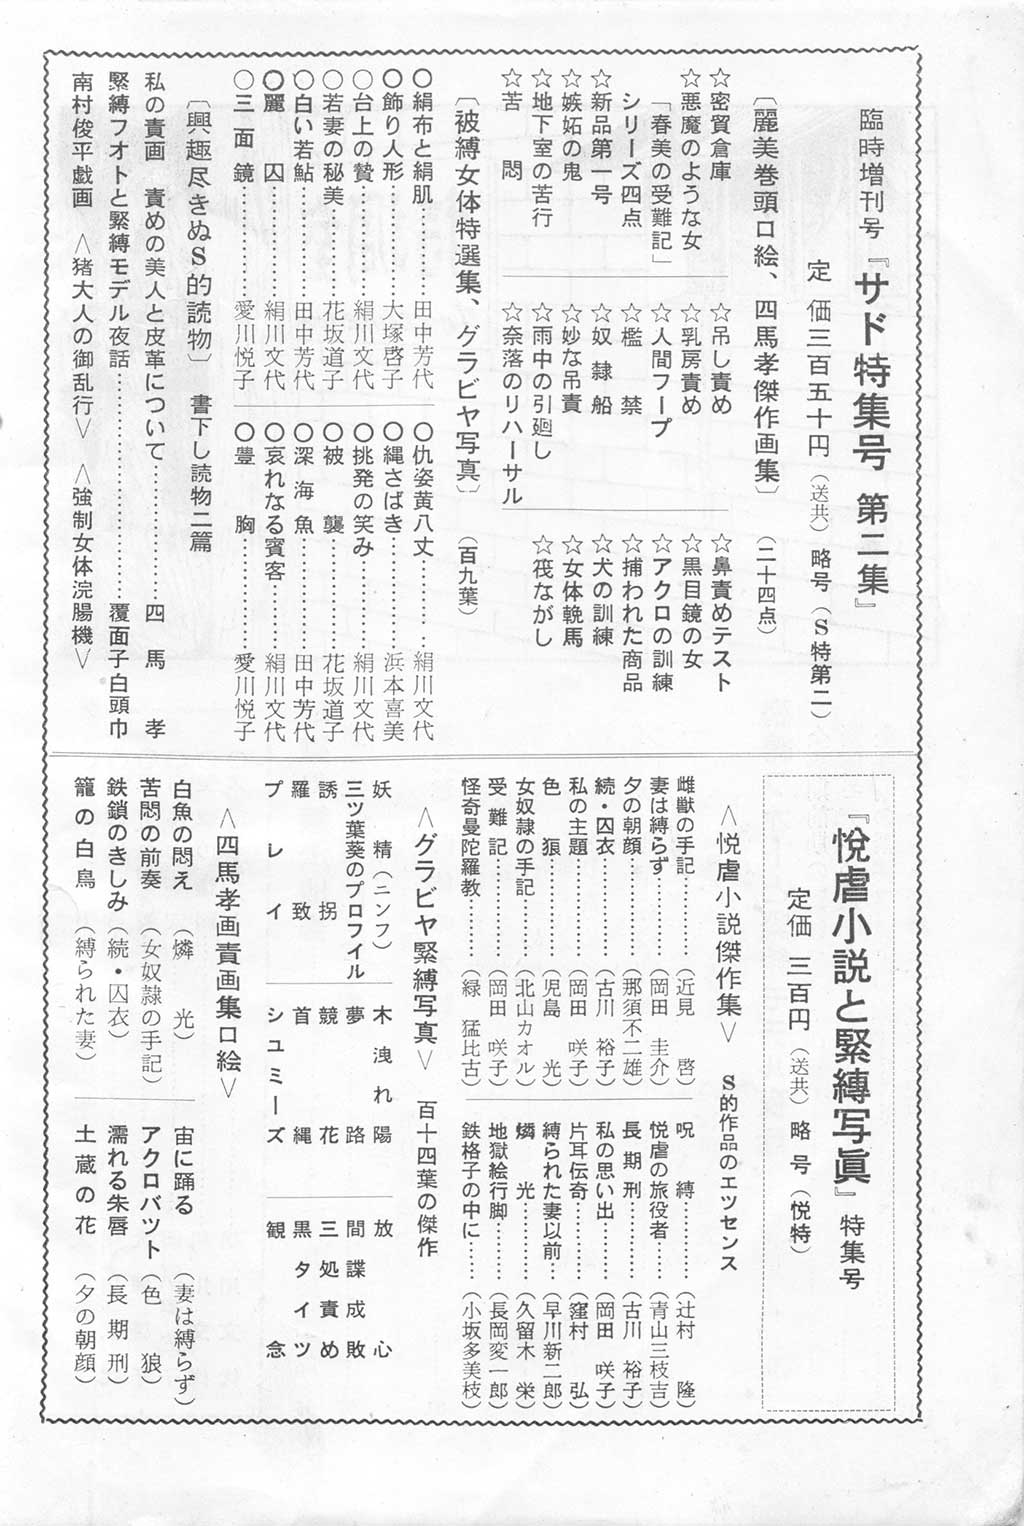 臨時増刊号『サド特集号 第二集』
定価三百五十円（送共）略号（S特第二）
〔麗美巻頭口絵、四馬孝傑作画集〕（二十四点）
☆密貿倉庫
☆悪魔のような女
「春美の受難記」
シリーズ四点
☆新品第一号
☆嫉妬の鬼
☆地下室の苦行
☆苦悶
☆吊し責め
☆乳房責め
☆人間フープ
☆檻禁
☆奴隷船
☆妙な吊責
☆雨中の引廻し
☆奈落のリハーサル
☆鼻責めテスト
☆黒目鏡の女
☆アクロの訓練
☆捕われた商品
☆犬の訓練
☆女体輓馬
☆筏ながし
〔被縛女体特選集、グラビヤ写真〕（百九葉）
○絹布と絹肌…………田中芳代
○飾り人形…………大塚啓子
○台上の贄…………絹川文代
○若妻の秘美…………花坂道子
○白い若鮎…………田中芳代
○麗囚…………絹川文代
○三面鏡…………愛川悦子
○仇姿黄八丈…………絹川文代
○縄さばき…………浜本喜美
○挑発の笑み…………絹川文代
○被襲…………花坂道子
○深海魚…………田中芳代
○哀れなる賓客…………絹川文代
○豊胸…………愛川悦子
〔興趣尽きぬS的読物〕 書下し読物二篇
私の責画 責めの美人と皮革について…………四馬孝
緊縛フオトと緊縛モデル夜話…………覆面子白頭巾
南村俊平戯画 〈猪大人の御乱行〉 〈強制女体浣腸機〉
『悦虐小説と緊縛写眞』特集号
定価 三百円（送共）略号（悦特）
〈悦虐小説傑作集〉 S的作品のエツセンス
雌獣の手記…………（近見啓）
妻は縛らず…………（岡田圭介）
夕の朝顔…………（那須不二雄）
続・囚衣…………（古川裕子）
私の主題…………（岡田咲子）
色狼…………（児島光）
女奴隷の手記…………（北山カオル）
受難記…………（岡田咲子）
怪奇曼陀羅教…………（緑猛比古）
呪縛…………（辻村隆）
悦虐の旅役者…………（青山三枝吉）
長期刑…………（古川裕子）
私の思い出…………（岡田咲子）
片耳伝奇…………（窪村弘）
縛られた妻以前…………（早川新二郎）
燐光…………（久留木栄）
地獄絵行脚…………（長岡変一郎）
鉄格子の中に…………（小坂多美枝）
〈グラビヤ緊縛写真〉 百十四葉の傑作
妖精（ニンフ）
三ツ葉葵のプロフイル
誘拐
羅致
プレイ
木洩れ陽
夢路
競花
首縄
シユミーズ
放心
間諜成敗
三処責め
黒タイツ
観念
〈四馬孝画責画集口絵〉
白魚の悶え（燐光）
苦悶の前奏（女奴隷の手記）
鉄鎖のきしみ（続・囚衣）
籠の白鳥（縛られた妻）
宙に踊る（妻は縛らず）
アクロバツト（色狼）
濡れる朱唇（長期刑）
土蔵の花（夕の朝顔）